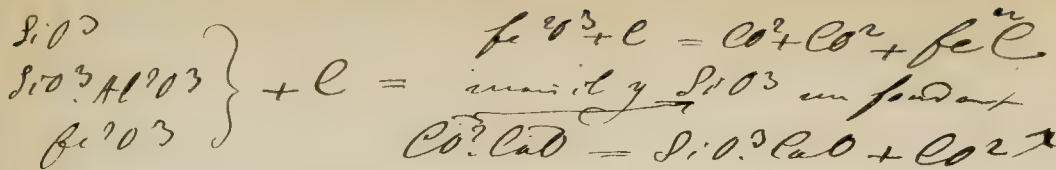 SiO³
SiO³.Al²O³ } + C =
fe²O³
fe²O³ + C = CO² + CO² + feⁿC
mais il y SiO³ un fondant
CO².CaO = SiO³.CaO + CO² ↗